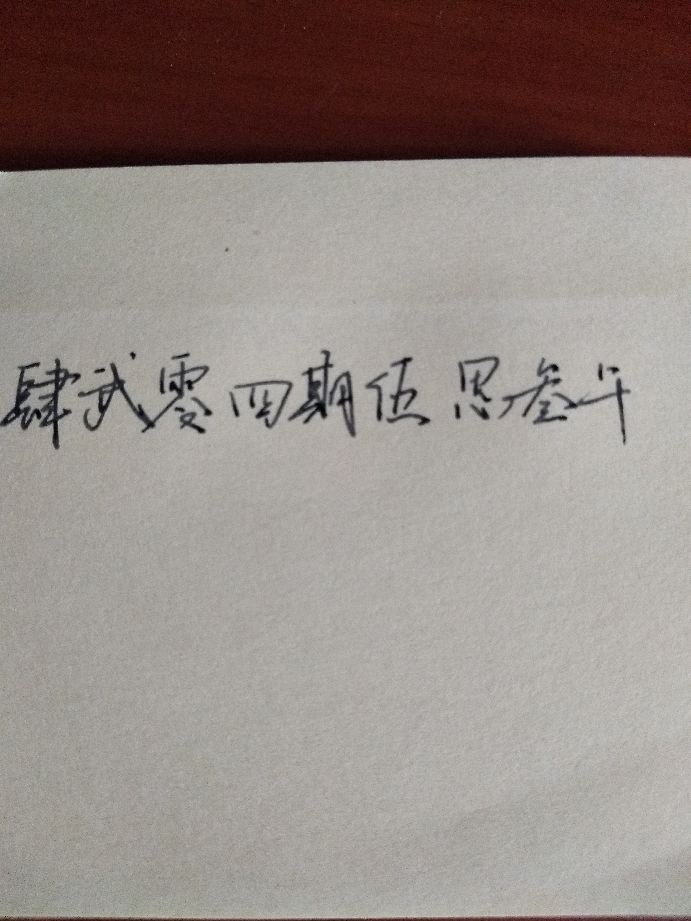 肆武零四期伍思叁斗